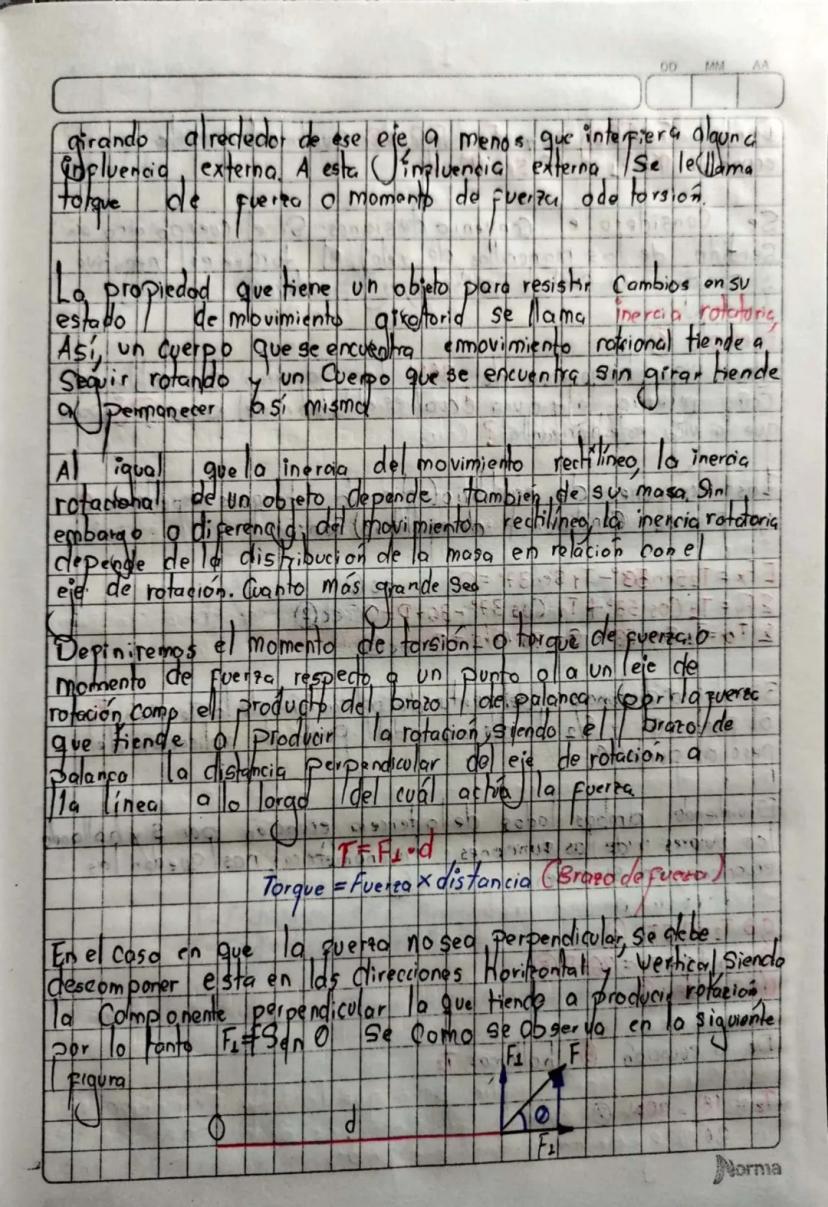 DD MM AA
girando alrededor de ese eje, a menos que interfiera alguna
influencia externa. A esta influencia externa se le llama
torque de fuerza o momento de fuerza o de torsión.
La propiedad que tiene un objeto para resistir cambios en su
estado de movimiento giratorio se llama inercia rotatoria,
Así, un cuerpo que se encuentra movimiento rotacional tiende a
seguir rotando y un cuerpo que se encuentra sin girar tiende
a permanecer así mismo
Al igual que la inercia del movimiento rectilíneo, la inercia
rotacional de un objeto depende también de su masa. Sin
embargo a diferencia del movimiento rectilíneo, la inencia rotatoria
depende de la distribución de la masa en relación con el
eje de rotación. Cuanto más grande sea
Definiremos el momento de torsión o torque de fuerza o
momento de fuerza respecto a un punto o a un eje de
rotación como el producto del brazo de palanca por la fuerza
que tiende al producir la rotación, siendo el brazo de
palanca la distancia perpendicular del eje de rotación a
lla línea a lo largo del cuál actúa la fuerza
T=F⊥·d
Torque = Fuerza × distancia (Brazo de fuerza)
En el caso en que la fuerza no sea perpendicular, se debe
descomponer esta en las direcciones Horizontal y Vertical siendo
la componente perpendicular la que tiende a producir rotación
por lo tanto F⊥=FSen θ se como se observa en la siguiente
figura
F⊥ F
O d θ
F⊥
Norma